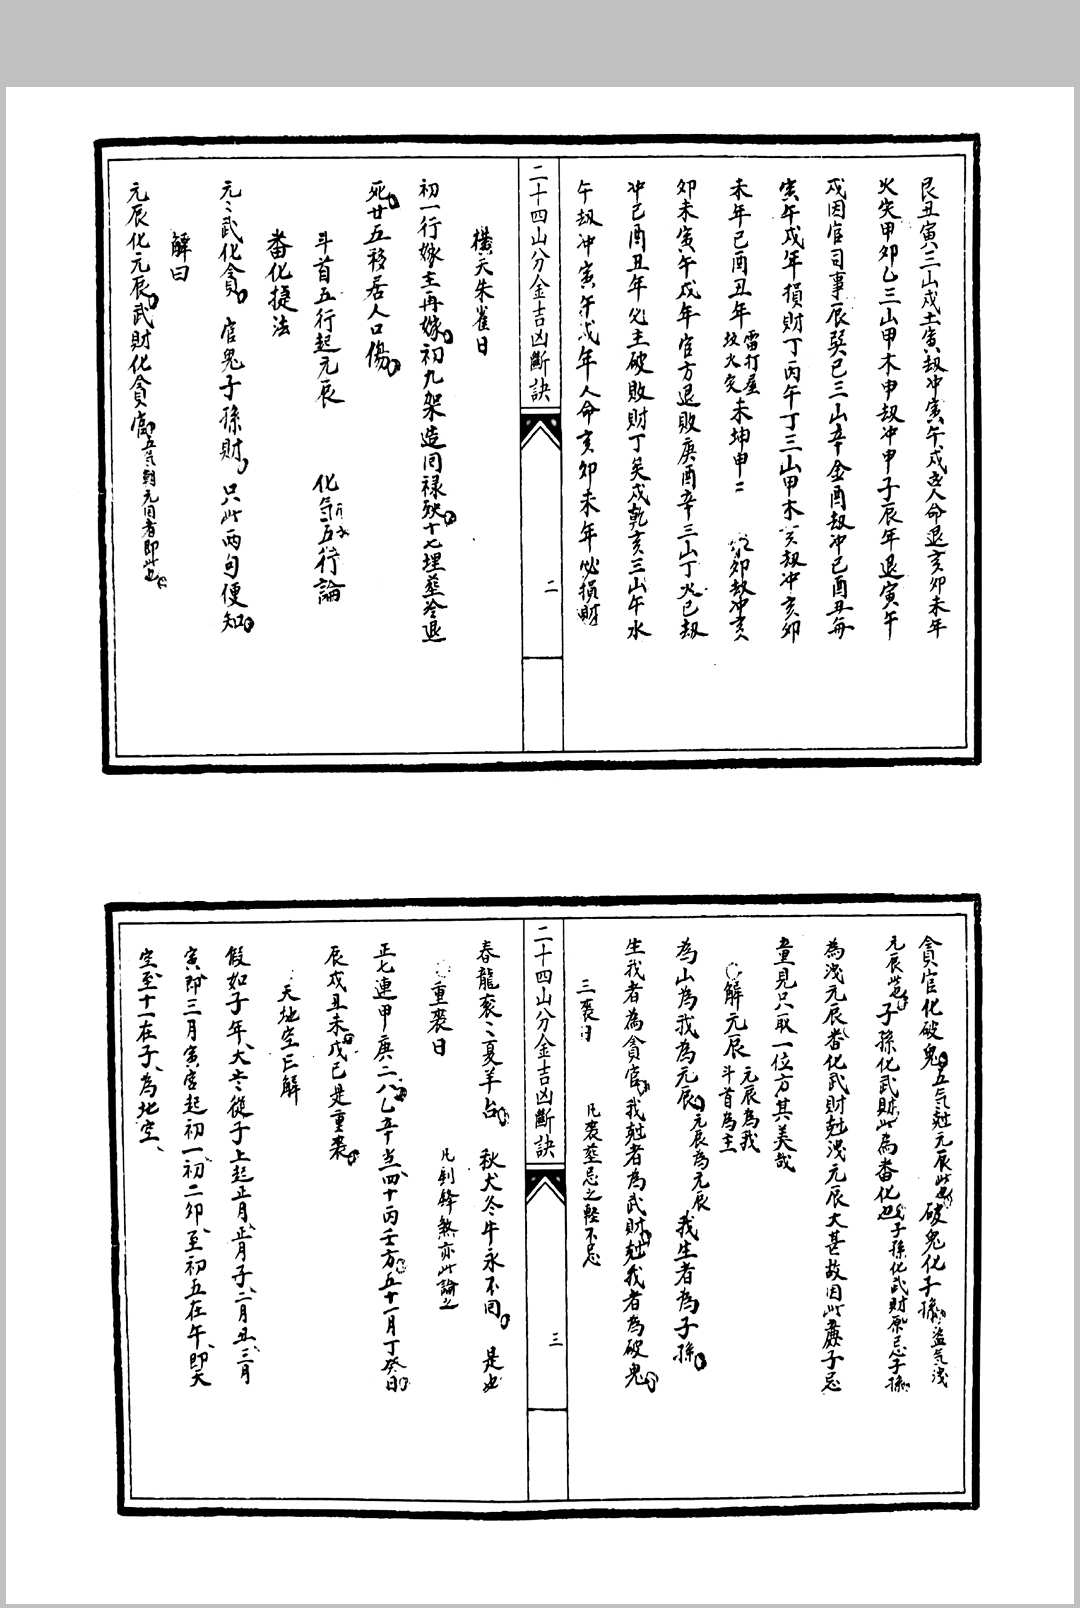 艮丑寅三山戍土寅刼冲寅午戍年人命退亥卯未年
火災甲卯乙三山甲木申刼冲申子辰年退寅午
戍因官司事辰巽巳三山辛金酉刼冲巳酉丑每
寅午戍年損財丁丙午丁三山甲木亥刼冲亥卯
未年巳酉丑年雷打屋坟火災未坤申二 卯刼冲亥
卯未寅午戍年官方退敗庚酉辛三山丁火巳刼
冲巳酉丑年必主破敗財丁矣戍乾亥三山午水
午刼冲寅午戍年人命亥卯未年必損財
二十四山分金吉凶斷訣
二
橫天朱雀日
初一行嫁主再嫁初九架造回禄殃十七埋葬冷退
死廿五移居人口傷
斗首五行起元辰 化氣五行論
番化捷法
元々武化貪 官鬼子孫財 只此两句便知
解曰
元辰化元辰武財化貪官五氣朝元局者即此也
貪官化破鬼五氣尅元辰此也破鬼化子孫盜氣洩
元辰子孫化武財此為番化也子孫化武財原忌子孫
為洩元辰番化武財尅洩元辰大甚故因此廉子忌
重見只取一位方其美哉
解元辰元辰為我斗首為主
為山為我為元辰元辰為元辰我生者為子孫
生我者為貪官我尅者為武財尅我者為破鬼
三喪日 凡喪葬忌之輕不忌
二十四山分金吉凶斷訣
三
春龍喪々夏羊台 秋犬冬牛永不同 是也
重喪日 凡釗鋒煞亦此論之
正七連甲庚二八乙辛当四十丙壬方五十一月丁癸日
辰戍丑未戊己是重喪
天地空亡解
假如子年大冬從子上起正月正月子二月丑三月
寅即三月寅宫起初一初二卯至初五在午即天
空至十一在子為地空